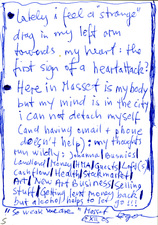 Lately i feel a "strange"
drag in my left arm
towards my heart: the
first sign of a heartattack?
Here in Masset is my body
but my mind is in the city
i can not detach myself
(and having email + phone
doesn't help): my thoughts
run wildly: Johanna/Business/
Landlord/Money/
Cashflow/Health/Stockmarket/
Art/New Art Business/Selling
Stuff/Getting lent money back/
but alcohol helps to let go!!!
"So weak we are." Masset
XII 05
5